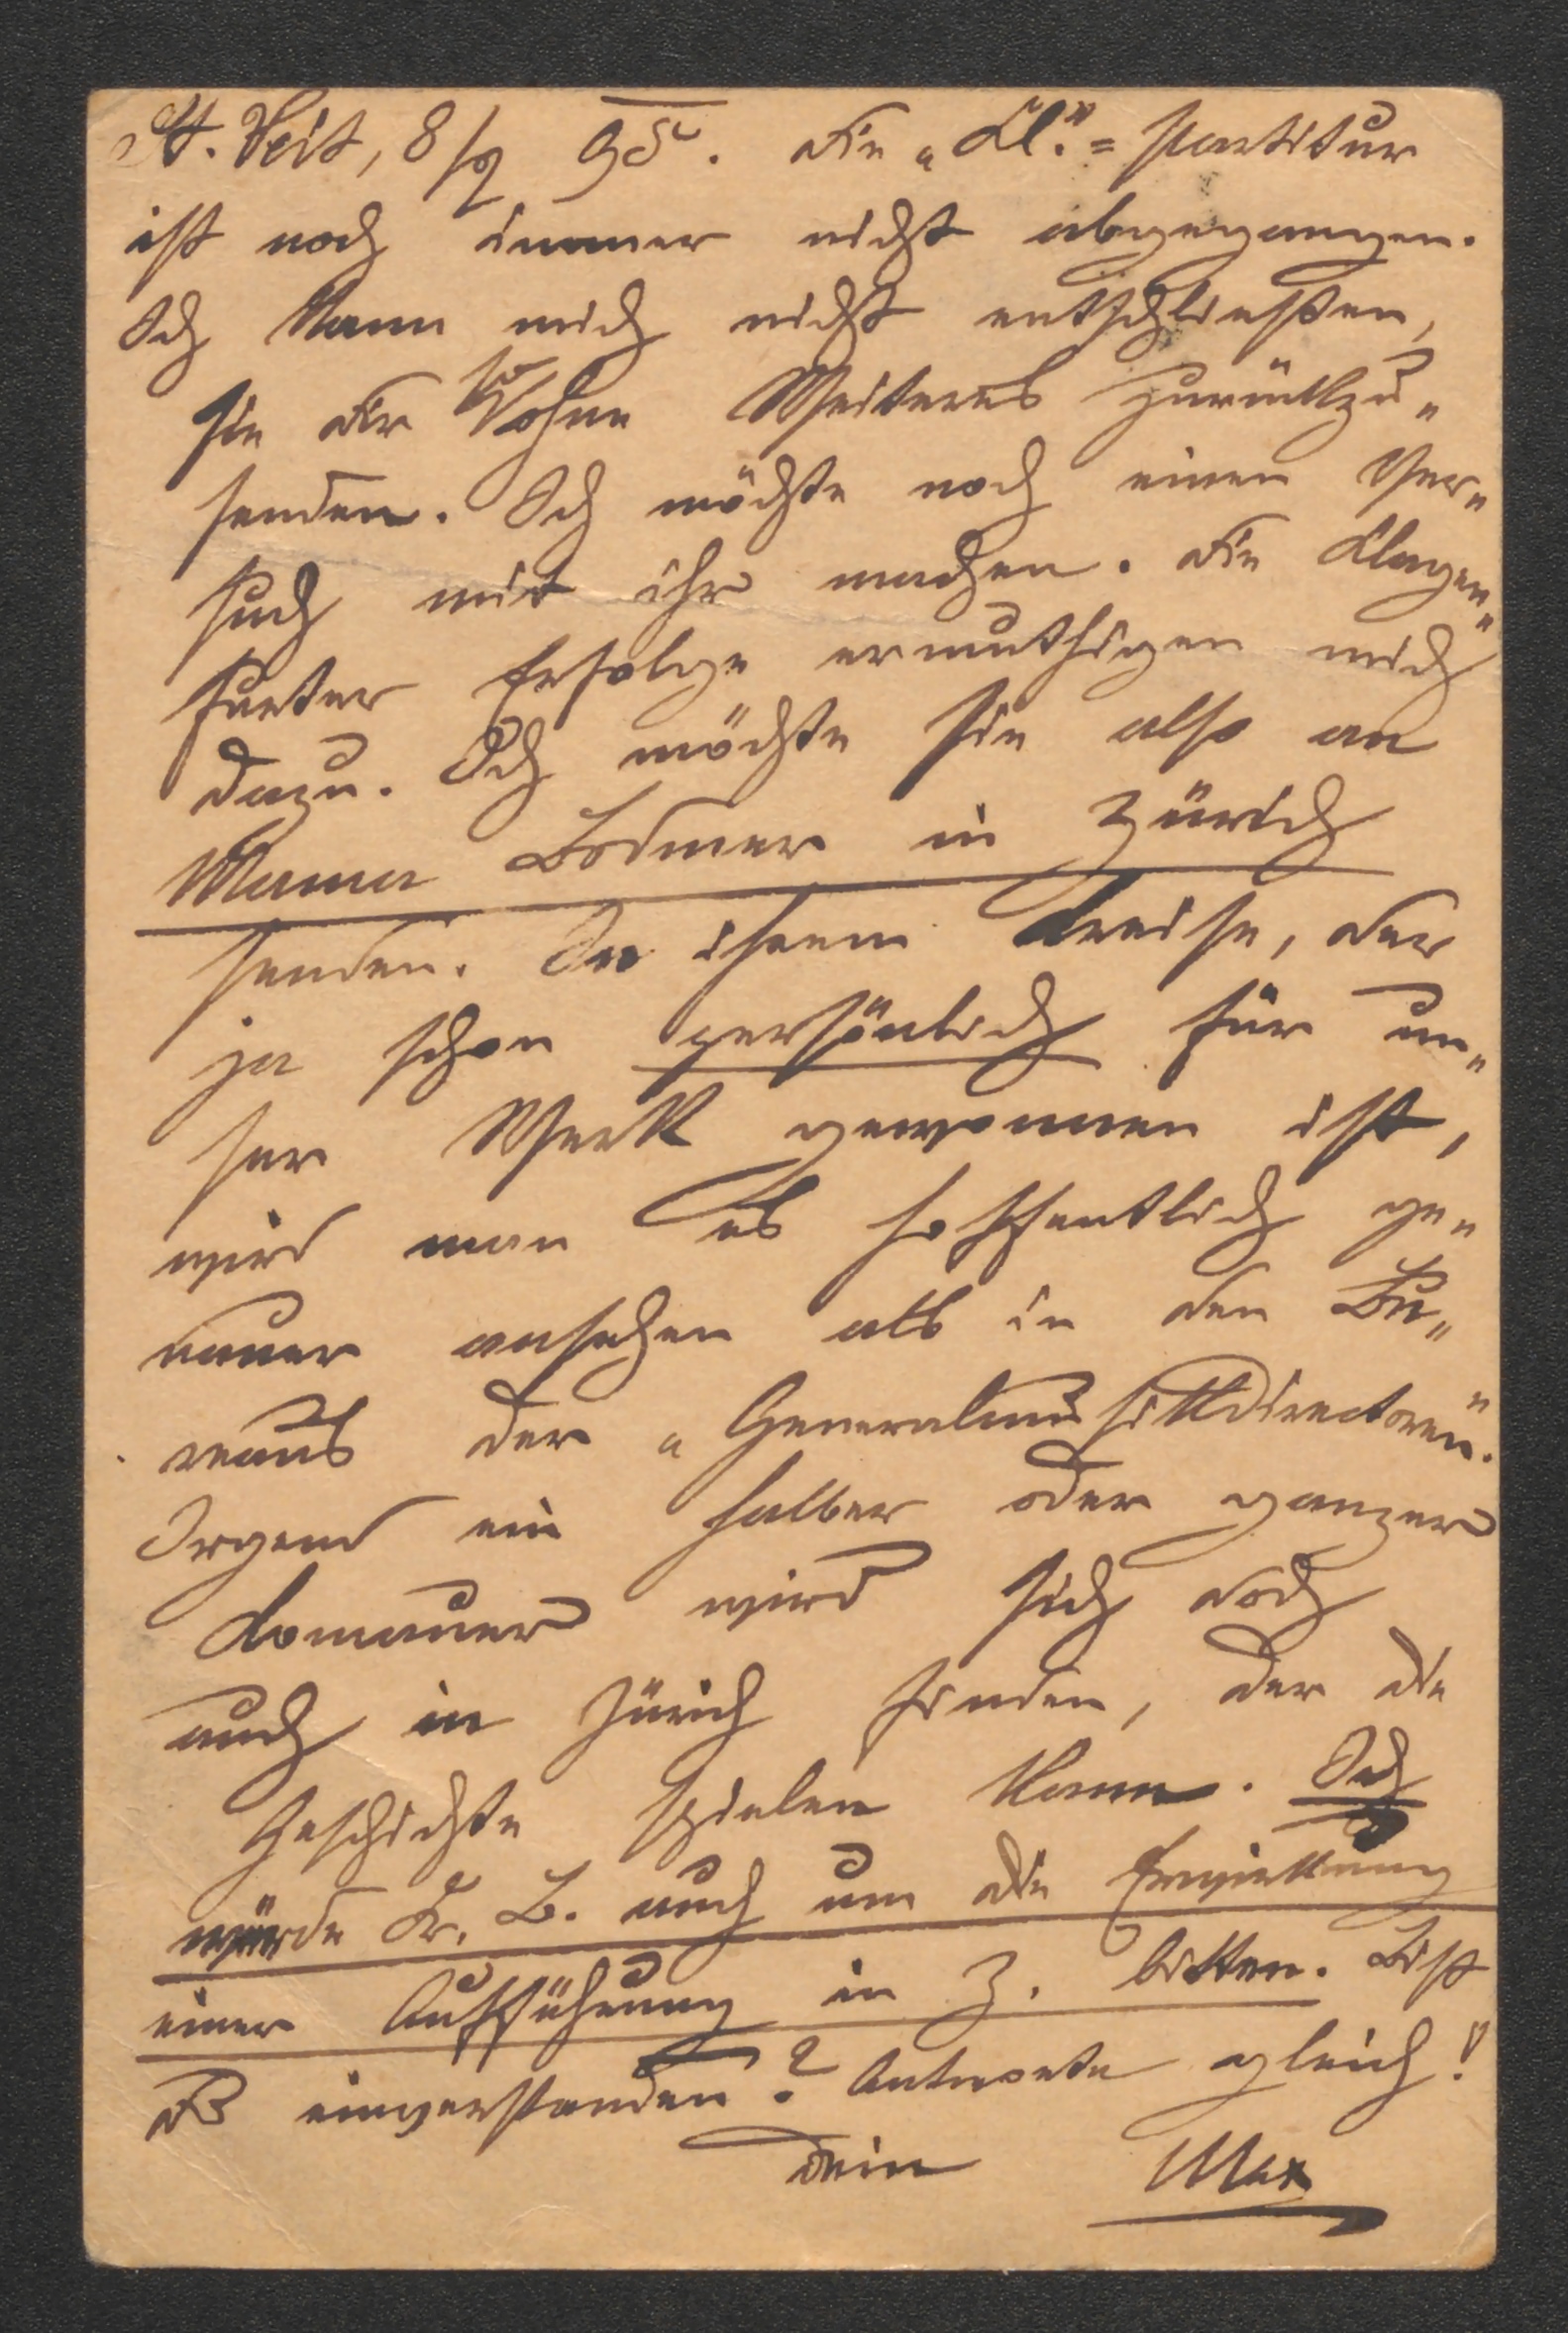 St. Veit, 8/9 95. Die „Kl."=Partitur
ist noch immer nicht abgegangen.
Ich kann mich nicht entschließen,
sie Dir so ohne Weiteres zurückzu„
senden. Ich möchte noch einen Ver„
such mit ihr machen. Die Klagen„
furter Erfolge ermuthigen mich
dazu. Ich möchte sie also an
Mama Bodmer in Zürich
senden. In ihrem Kreise, der
ja schon persönlich für un„
ser Werk gewonnen ist,
wird man es hoffentlich ge„
nauer ansehen als in den Bu„
reaus der „Generalmusikdirectoren".
Irgend ein halber oder ganzer
Komauer wird sich doch
auch in Zürich finden, der die
Geschichte spielen kann. Ich
würde Fr. B. auch um die Erwirkung
einer Aufführung in Z. bitten. Bist
Du einverstanden? Antworte gleich!
Dein Max